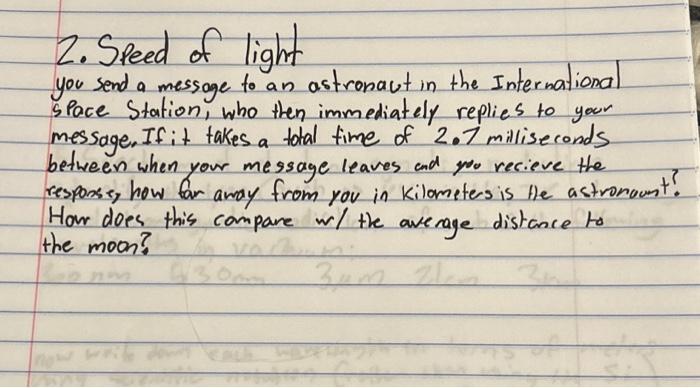 2. Speed of light
you send a message to an astronaut in the International
Space Station, who then immediately replies to your
message. If it takes a total time of 2.7 milliseconds
between when your message leaves and you recieve the
response, how far away from you in kilometers is the astronount?
How does this compare w/ the average distance to
the moon?
300 nm 530nm 3μm 21cm 3m